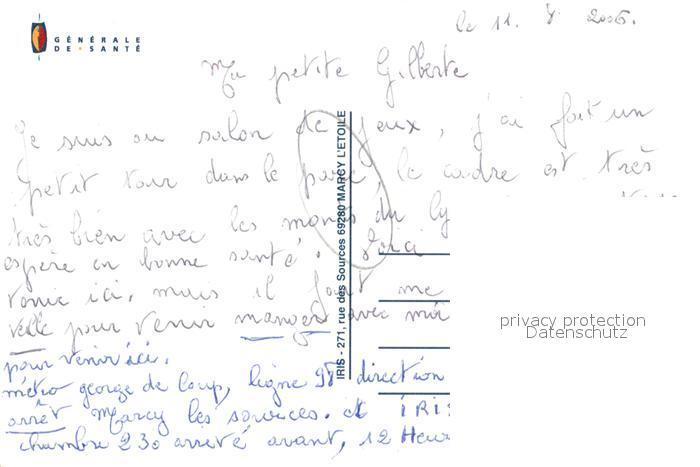 GÉNÉRALE
DE • SANTÉ
le 11. 8. 2006.
Ma petite Gilberte
Je suis au salon de jeux, j'ai fait un
petit tour dans le parc, le cadre est très
très bien avec les monts du ly
espère en bonne santé. Voici
venir ici, mais il faut me
veille pour venir manger avec moi
pour venir ici.
métro george de loup, ligne 98 direction
arrêt Marcy les sources. et IRIS
chambre 230 arrivé avant, 12 Heur
IRIS - 271, rue des Sources 69280 MARCY L'ETOILE
privacy protection
Datenschutz